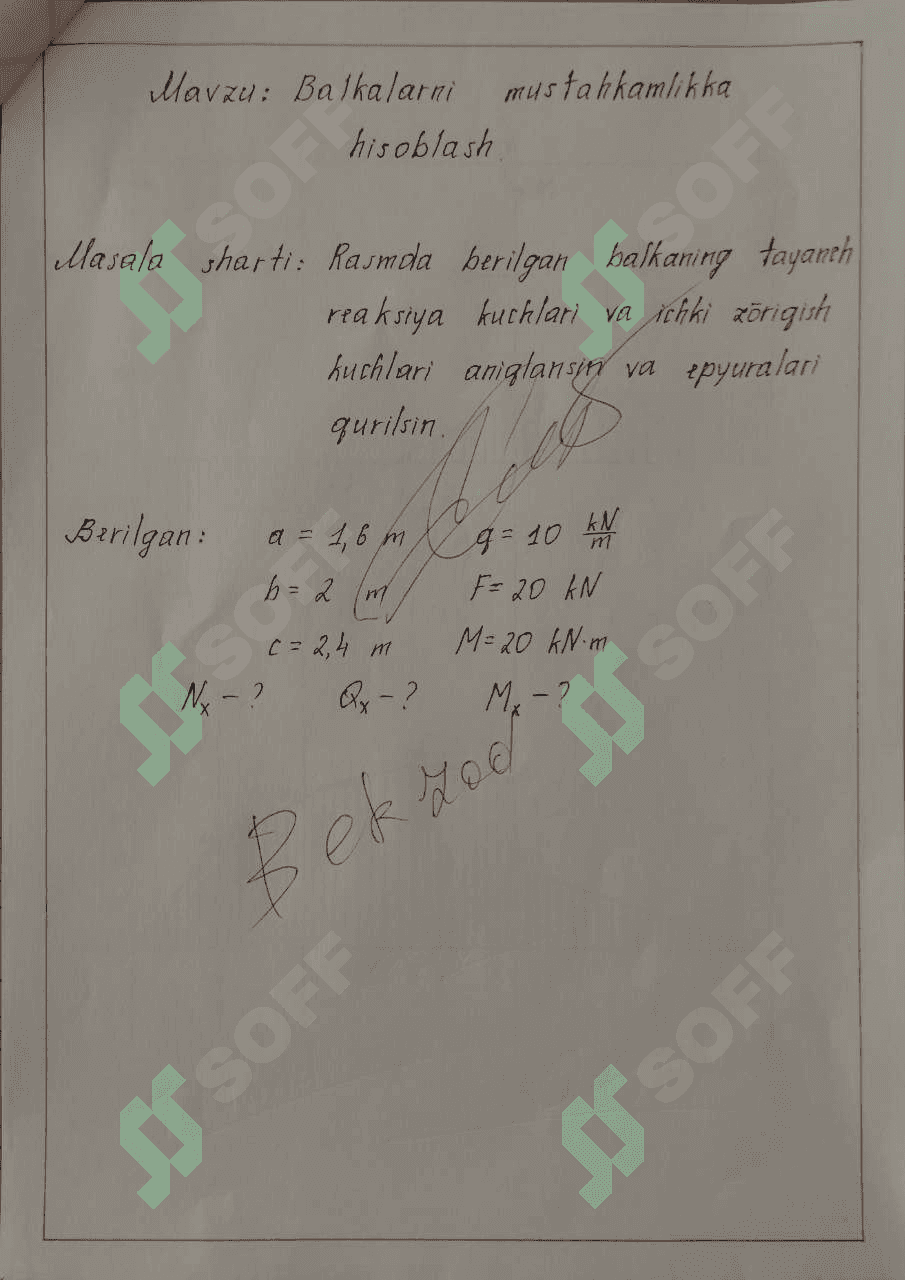 Mavzu: Balkalarni mustahkamlikka
hisoblash.
Masala sharti: Rasmda berilgan balkaning tayanch
reaksiya kuchlari va ichki zōriqish
kuchlari aniqlansin va epyuralari
qurilsin.
Berilgan: a = 1,6 m q = 10 kN/m
b = 2 m F = 20 kN
c = 2,4 m M = 20 kN·m
Nx - ? Qx - ? Mx - ?
Bekzod
SOFF
SOFF
SOFF
SOFF
SOFF
SOFF